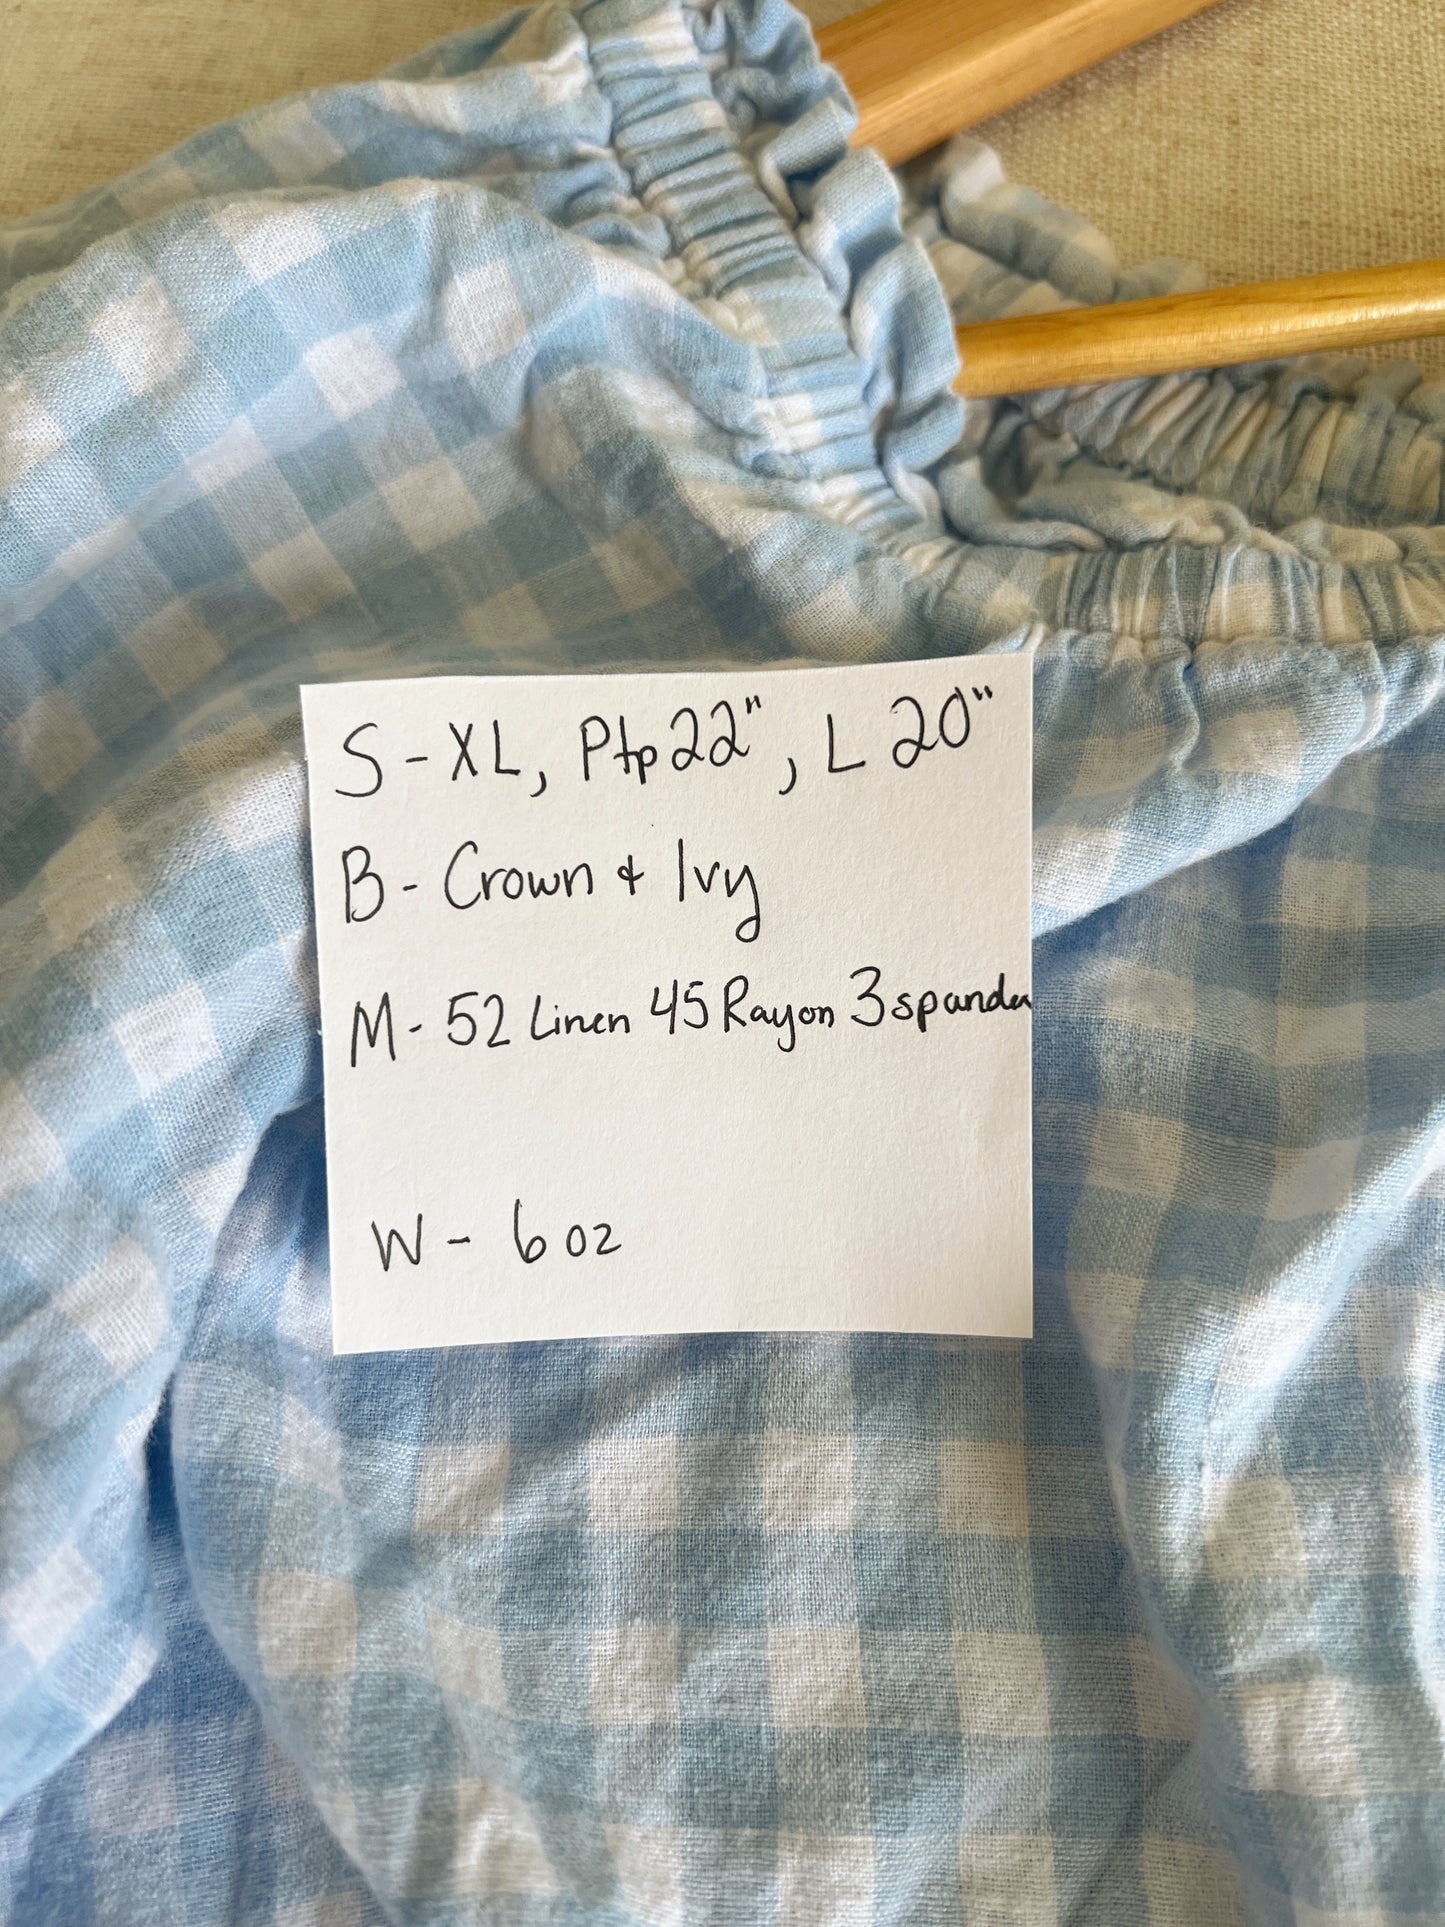 S - XL, Ptp 22", L 20"
B - Crown & Ivy
M - 52 Linen 45 Rayon 3 spandex
W - 6 oz